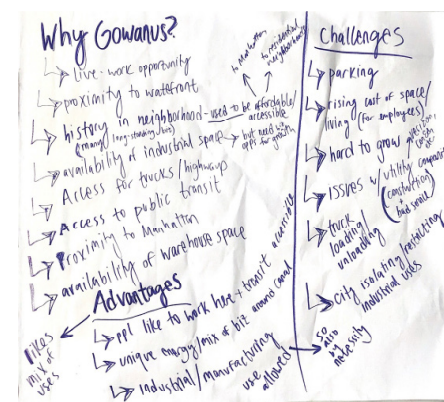 Why Gowanus?
↳ live-work opportunity
↳ proximity to watefront
↳ history in neighborhood - used to be affordable/
accessible
(many long-standing biz)
to Manhattan
to residential
neighborhoods
↳ availability of industrial space
but need big
opps for growth
↳ Access for trucks/highways
↳ Access to public transit
↳ Proximity to Manhattan
↳ availability of warehouse space
likes
mix of
uses
Advantages
↳ ppl like to work here + transit accessible
↳ unique energy/mix of biz around canal
↳ Industrial/manufacturing
use
allowed
so
also
by
necessity
Challenges
↳ parking
↳ rising cost of space/
living (for employees)
↳ hard to grow
↳ Issues w/ utility companies
(construction
+ bad smell)
↳ truck
loading/
unloading
↳ city isolating/restricting
industrial uses